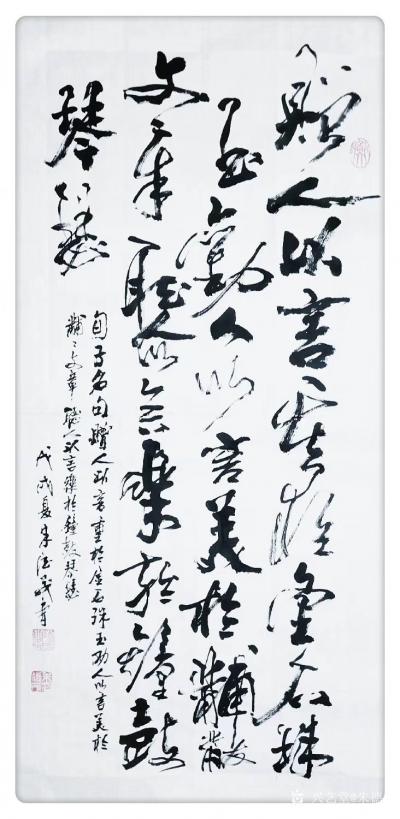 贈人以言重於金石珠
玉勸人以言美於黼黻
文章聽人以言樂於鐘鼓
琴瑟
荀子名句贈人以言重於金石珠玉劝人以言美於
黼黻文章聽人以言樂於鐘鼓琴瑟
戊戌夏朱德茂書